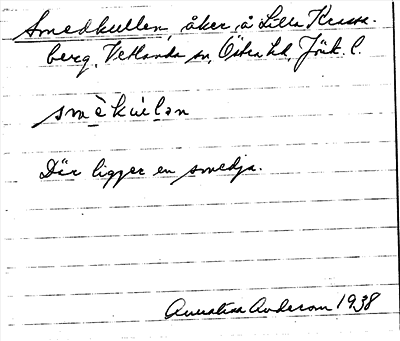 Smedkullen, åker å Lilla Krassa-
berg, Vetlanda sn, Östra hd, Jönk. l.
smèkùlən
Där ligger en smedja.
Anderson 1938